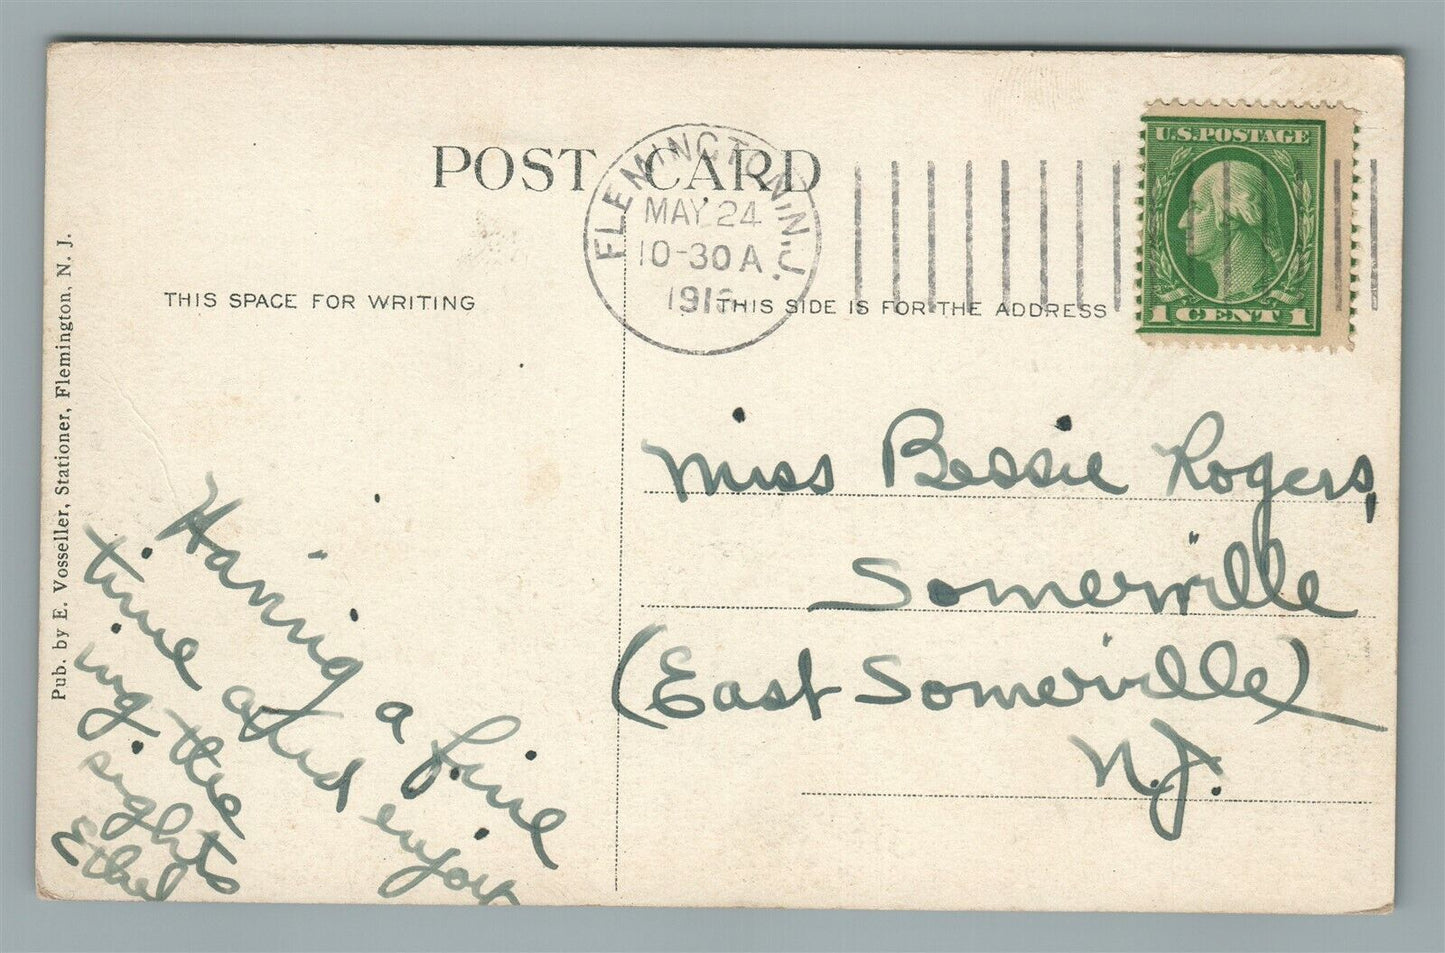 POST CARD
FLEMINGTON, N.J.
MAY 24
10-30 A
U.S. POSTAGE
1 CENT 1
THIS SPACE FOR WRITING
THIS SIDE IS FOR THE ADDRESS
Pub. by E. Vosseller, Stationer, Flemington, N. J.
Having a fine
time and enjoy
ing the
sights
Ethel
Miss Bessie Rogers,
Somerville
(East Somerville)
N.J.